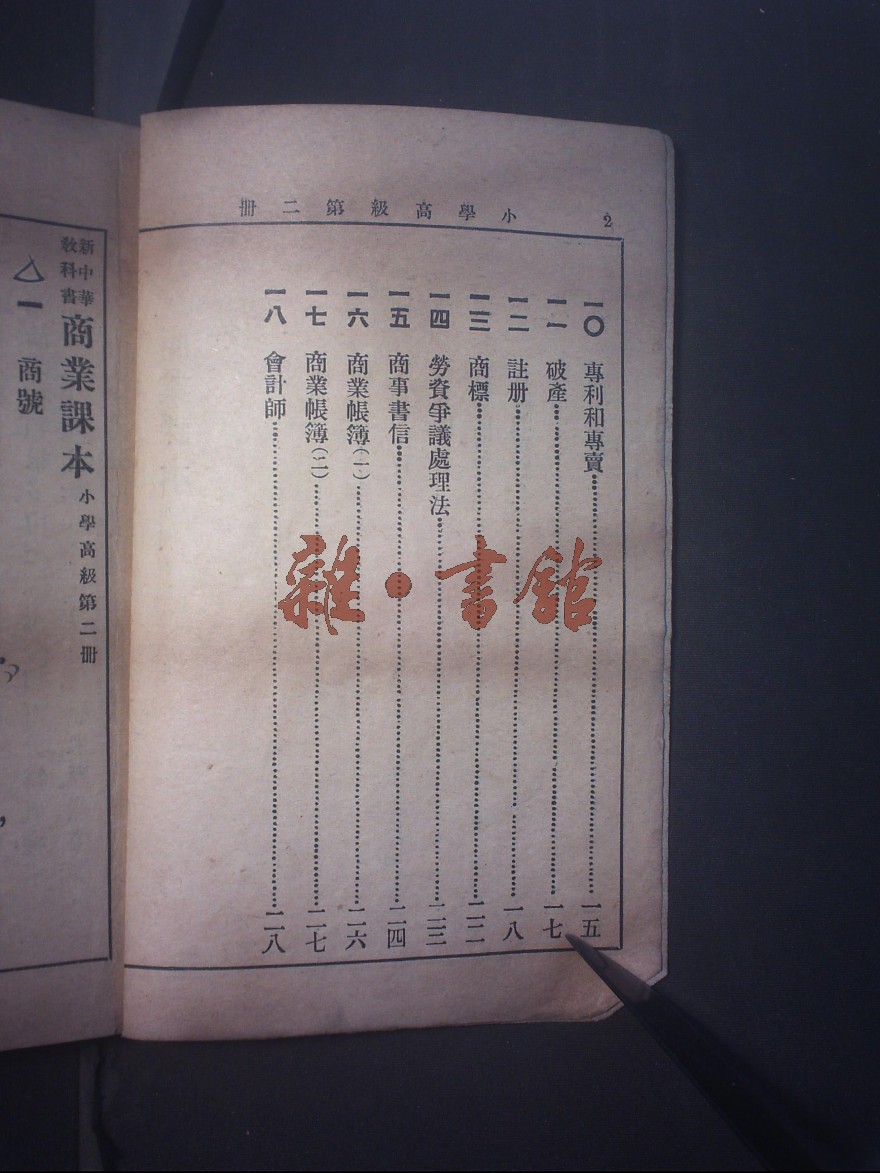 小學高級第二冊
2
一〇 專利和專賣 一五
一一 破產 一七
一二 註册 一八
一三 商標 二二
一四 勞資爭議處理法 二三
一五 商事書信 二四
一六 商業帳簿(一) 二六
一七 商業帳簿(二) 二七
一八 會計師 二八
雜·書館
新中華教科書 商業課本 小學高級第二冊
一 商號